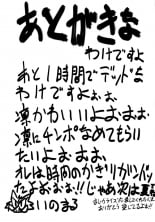 あとがきな
わけですよ
あと1時間でデッドな
わけですよぉぉ。
凛かわいいよぉぉぉ。
凛にチンポなめてもらい
たいよぉぉぉ。
オレは時間のかぎりガンバッ
たよぉぉぉ!!じゃあ次は夏